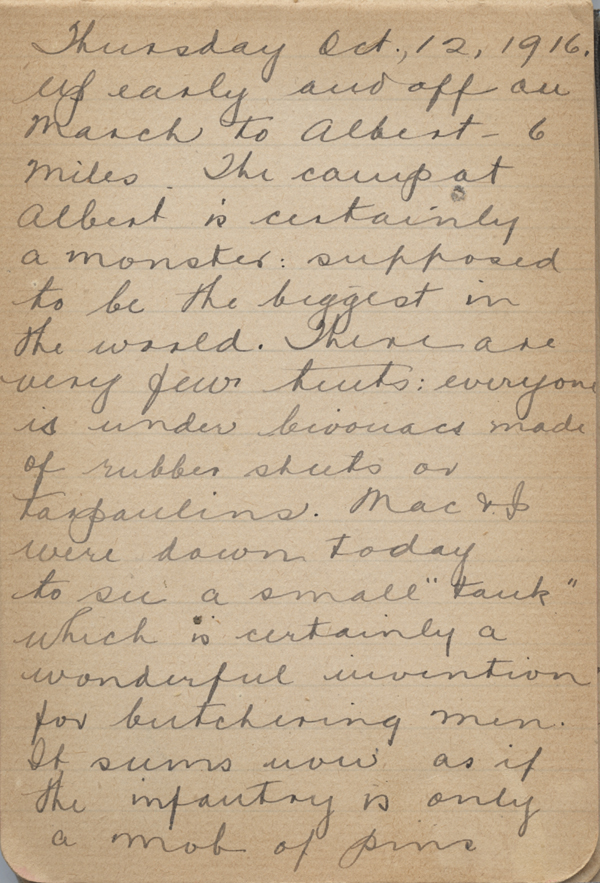 Thursday Oct., 12, 1916.
Up early and off on
march to Albert - 6
miles. The camp at
Albert is certainly
a monster: supposed
to be the biggest in
the world. There are
very few tents: everyone
is under bivouacs made
of rubber sheets or
tarpaulins. Mac & I
were down today
to see a small "tank"
which is certainly a
wonderful invention
for butchering men.
It seems now as if
the infantry is only
a mob of pins